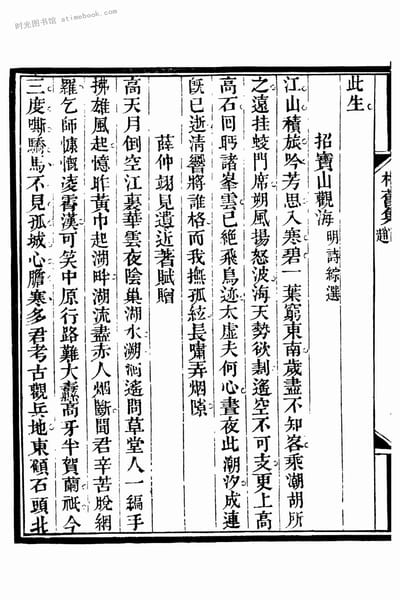 时光图书馆 atimebook.com
此生
招寶山觀海 明詩綜選
江山積旅吟芳思入寒碧一葉窮東南歲盡不知客乘潮胡所
之遠挂蛟門席朔風揚怒波海天勢欲割遙空不可支更上高
高石回眄諸峯雲已絶飛鳥迹太虛夫何心晝夜此潮汐成連
旣已逝清響將誰格而我撫孤絃長嘯弄烟隙
薛仲翊見遺近著賦贈
高天月倒空江裏華雲夜陰巢湖水溯洄遙問草堂人一編手
拂雄風起憶昨黃巾起湖畔湖流盡赤人烟斷聞君辛苦脫網
羅乞師慷慨凌霄漢可笑中原行路難大纛高牙半賀蘭祇今
三度嘶驕馬不見孤城心膽寒多君考古觀兵地東嶺石頭北